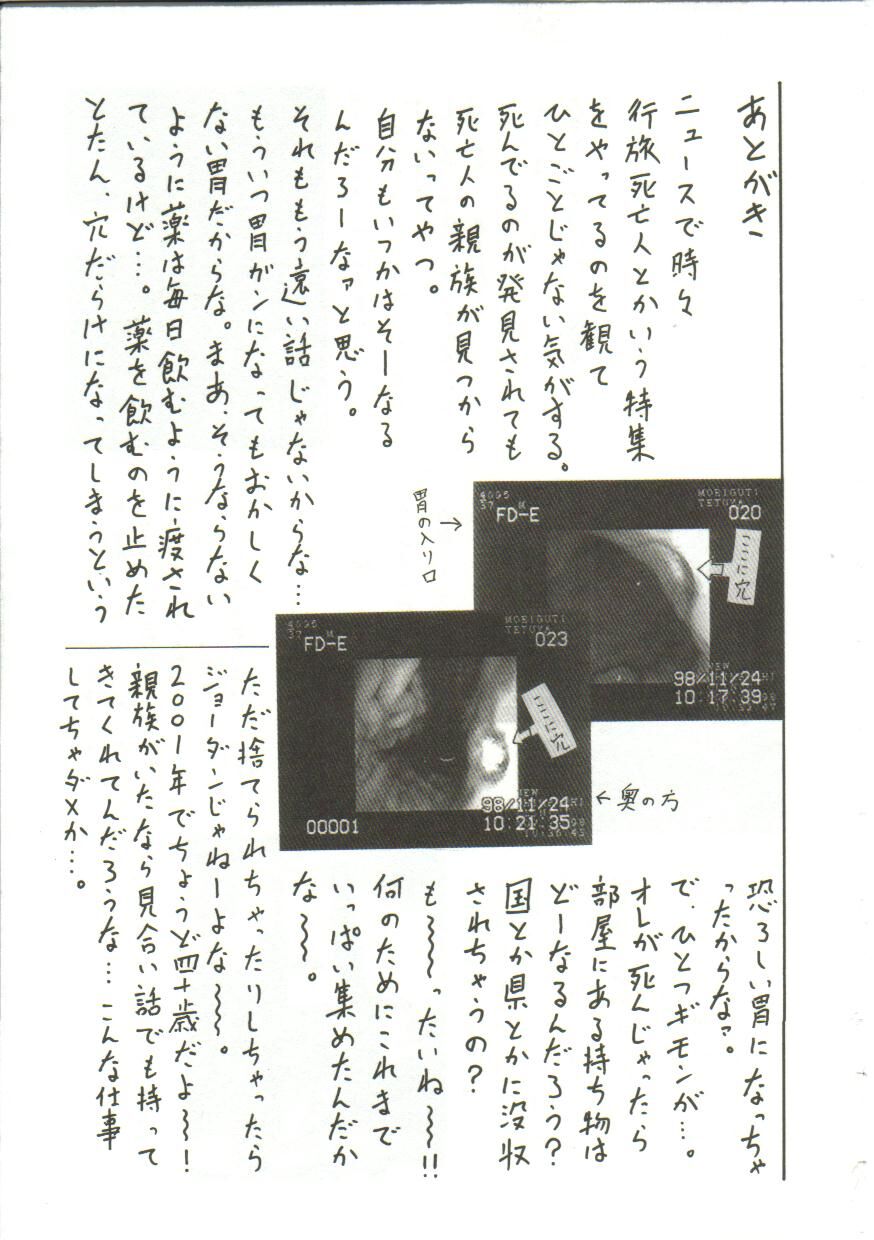 あとがき
ニュースで時々
行旅死亡人とかいう特集
をやってるのを観て
ひとごとじゃない気がする。
死んでるのが発見されても
死亡人の親族が見つから
ないってやつ。
自分もいつかはそーなる
んだろーなァと思う。
それももう遠い話じゃないからな…
もういつ胃がンになってもおかしく
ない胃だからな。まあ、そうならない
ように薬は毎日飲むように渡され
ているけど…。薬を飲むのを止めた
とたん、穴だらけになってしまうという
恐ろしい胃になっちゃ
ったからなァ。
で、ひとつギモンが…。
オレが死んじゃったら
部屋にある持ち物は
どーなるんだろう?
国とか県とかに没収
されちゃうの?
も〜〜ったいね〜〜!!
何のためにこれまで
いっぱい集めたんだか
な〜〜。
ただ捨てられちゃったりしちゃったら
ジョーダンじゃねーよな〜〜。
2001年でちょうど四十歳だよ〜!
親族がいたなら見合い話でも持って
きてくれてんだろうな…こんな仕事
してちゃダメか…。
胃の入り口→
4095
37 M
FD-E
MORIGUTI
TETUYA
020
ここに穴
NEW
98/11/24
10:17:39
4095
37 M
FD-E
MORIGUTI
TETUYA
023
ここに穴
NEW
98/11/24
00001
10:21:35
←奥の方